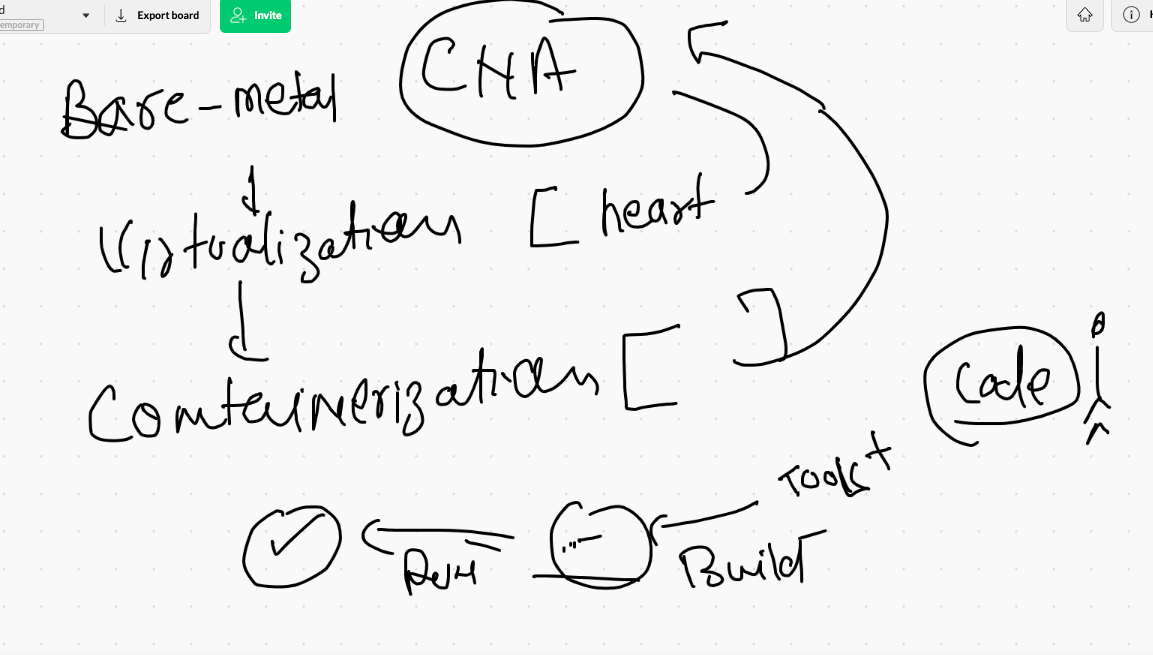 d
emporary
Export board
Invite
H
CNA
Bare-metal
Virtualization [ heart
Containerization [ ]
Code
Tools +
Build
Run